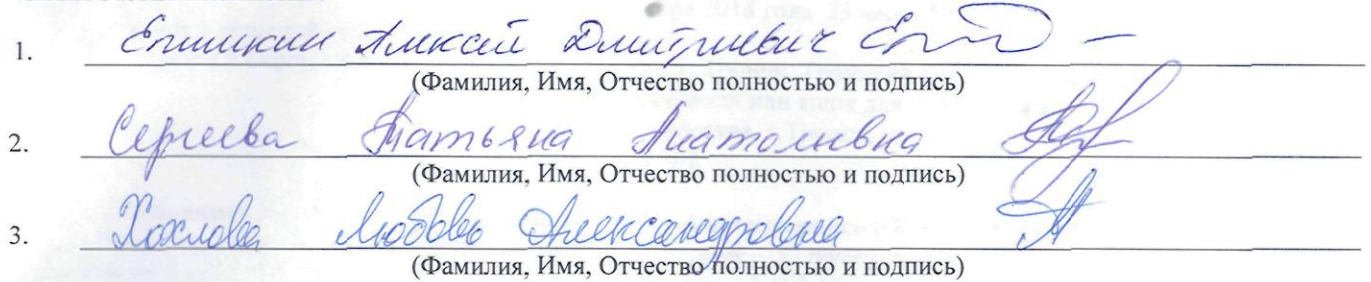 1. Епишкин Алексей Дмитриевич
(Фамилия, Имя, Отчество полностью и подпись)
2. Сергеева Татьяна Анатольевна
(Фамилия, Имя, Отчество полностью и подпись)
3. Хохлова Любовь Александровна
(Фамилия, Имя, Отчество полностью и подпись)